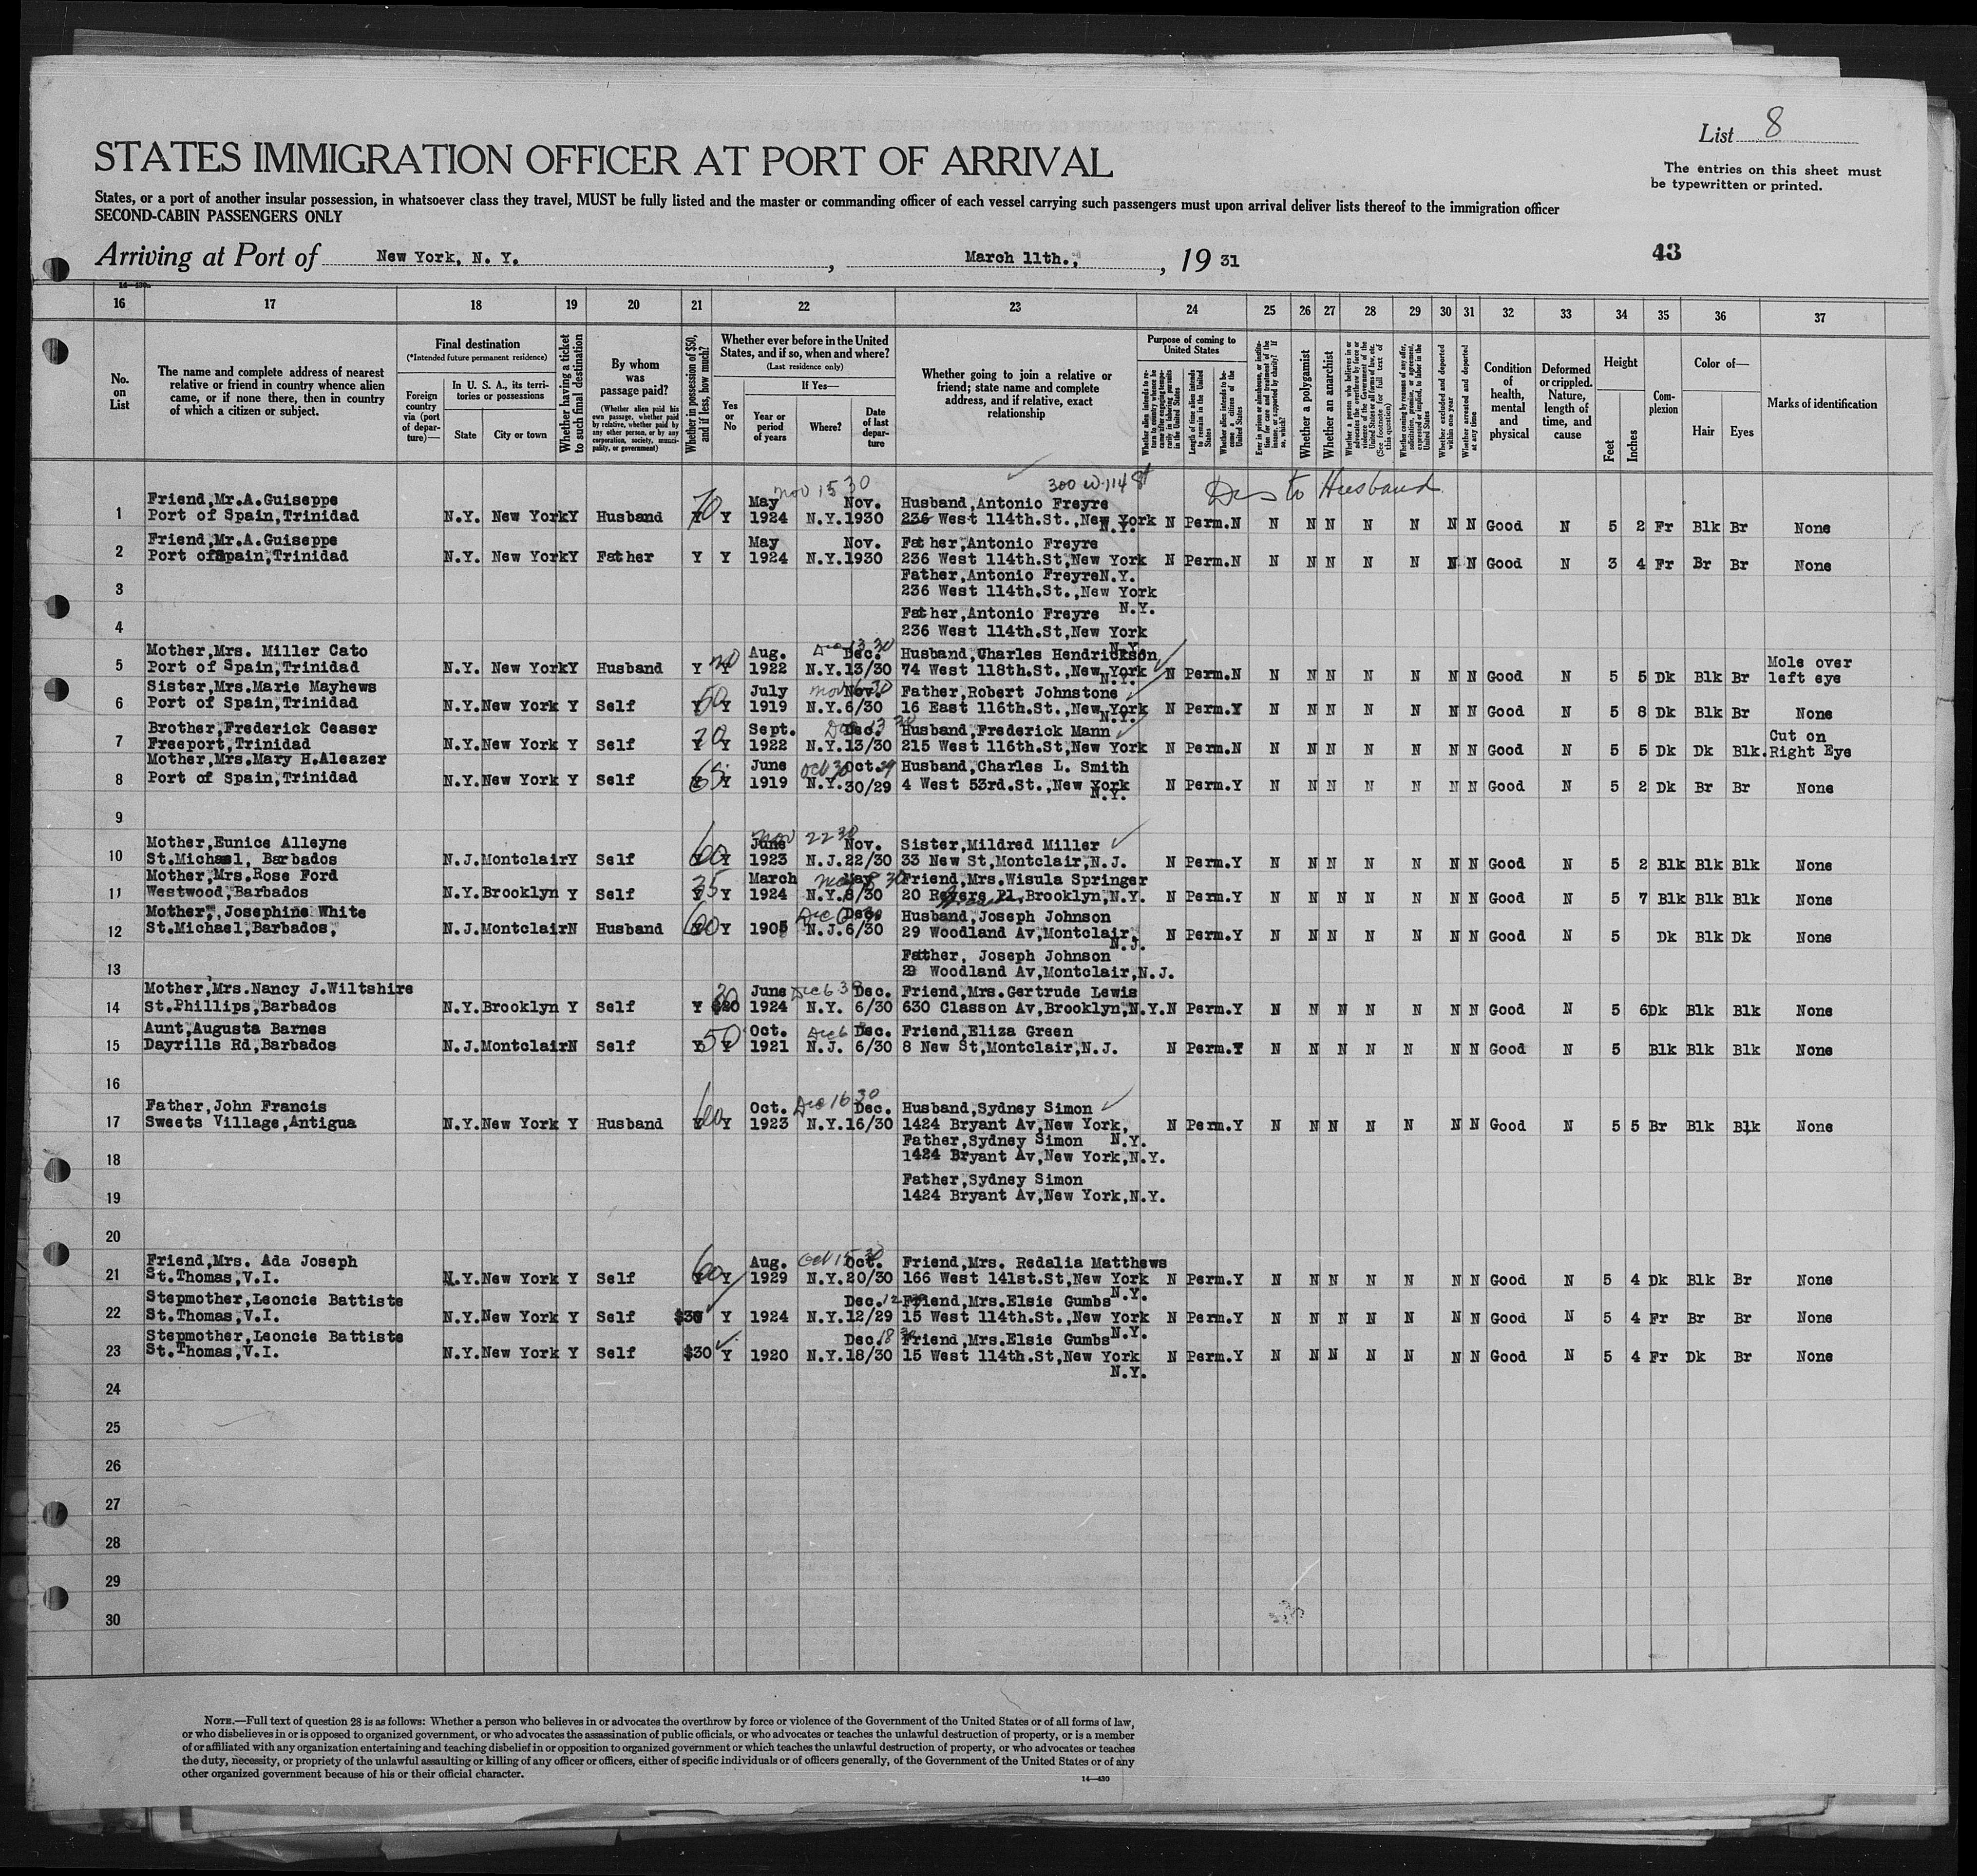 List 8
STATES IMMIGRATION OFFICER AT PORT OF ARRIVAL
The entries on this sheet must
be typewritten or printed.
States, or a port of another insular possession, in whatsoever class they travel, MUST be fully listed and the master or commanding officer of each vessel carrying such passengers must upon arrival deliver lists thereof to the immigration officer
SECOND-CABIN PASSENGERS ONLY
Arriving at Port of New York, N. Y. , March 11th., , 19 31
43
16 17 18 19 20 21 22 23 24 25 26 27 28 29 30 31 32 33 34 35 36 37
No. on List
The name and complete address of nearest relative or friend in country whence alien came, or if none there, then in country of which a citizen or subject.
Final destination
(*Intended future permanent residence)
Foreign country via (port of departure)—
In U. S. A., its territories or possessions
State
City or town
Whether having a ticket to such final destination
By whom was passage paid?
(Whether alien paid his own passage, whether paid by relative, whether paid by any other person, or by any corporation, society, municipality, or government)
Whether in possession of $50, and if less, how much?
Whether ever before in the United States, and if so, when and where?
(Last residence only)
Yes or No
If Yes—
Year or period of years
Where?
Date of last departure
Whether going to join a relative or friend; state name and complete address, and if relative, exact relationship
Purpose of coming to United States
Whether alien intends to return to country whence he came after engaging temporarily in laboring pursuits in the United States
Length of time alien intends to remain in the United States
Whether alien intends to become a citizen of the United States
Ever in prison or almshouse, or institution for care and treatment of the insane, or supported by charity? If so, which?
Whether a polygamist
Whether an anarchist
Whether a person who believes in or advocates the overthrow by force or violence of the Government of the United States or all forms of law, etc. (See footnote for full text of this question)
Whether coming by reason of any offer, solicitation, promise, or agreement, expressed or implied, to labor in the United States
Whether excluded and deported within one year
Whether arrested and deported at any time
Condition of health, mental and physical
Deformed or crippled. Nature, length of time, and cause
Height
Feet
Inches
Complexion
Color of—
Hair
Eyes
Marks of identification
Nov 15 30 300 W. 114 St to Husband
Friend,Mr.A.Guiseppe May Nov. Husband,Antonio Freyre
1 Port of Spain,Trinidad N.Y. New York Y Husband 70 Y 1924 N.Y. 1930 236 West 114th.St.,New York N.Y. N Perm. N N N N N N N N Good N 5 2 Fr Blk Br None
Friend,Mr.A.Guiseppe May Nov. Father,Antonio Freyre
2 Port of Spain,Trinidad N.Y. New York Y Father Y Y 1924 N.Y. 1930 236 West 114th.St,New York N Perm. N N N N N N N N Good N 3 4 Fr Br Br None
Father,Antonio Freyre N.Y.
3 236 West 114th.St.,New York
Father,Antonio Freyre N.Y.
4 236 West 114th.St,New York
N.Y.
Mother,Mrs. Miller Cato Aug. Dec. 13 30 Dec. Husband,Charles Hendrickson Mole over
5 Port of Spain,Trinidad N.Y. New York Y Husband Y Y 1922 N.Y. 13/30 74 West 118th.St.,New York N.Y. N Perm. N N N N N N N N Good N 5 5 Dk Blk Br left eye
Sister,Mrs.Marie Mayhews July Nov. Father,Robert Johnstone
6 Port of Spain,Trinidad N.Y. New York Y Self 50 Y 1919 N.Y. 6/30 16 East 116th.St.,New York N.Y. N Perm. Y N N N N N N N Good N 5 8 Dk Blk Br None
Brother,Frederick Ceaser Sept. Dec 13 30 Dec. Husband,Frederick Mann Cut on
7 Freeport,Trinidad N.Y. New York Y Self Y 1922 N.Y. 13/30 215 West 116th.St,New York N Perm. N N N N N N N N Good N 5 5 Dk Dk Blk. Right Eye
Mother,Mrs.Mary H.Aleazer June Oct 30 29 Oct. Husband,Charles L. Smith
8 Port of Spain,Trinidad N.Y. New York Y Self 65 Y 1919 N.Y. 30/29 4 West 53rd.St.,New York N.Y. N Perm. Y N N N N N N N Good N 5 2 Dk Br Br None
9
Mother,Eunice Alleyne June Nov 22 30 Nov. Sister,Mildred Miller
10 St.Michael, Barbados N.J. Montclair Y Self 60 Y 1923 N.J. 22/30 33 New St,Montclair,N.J. N Perm. Y N N N N N N N Good N 5 2 Blk Blk Blk None
Mother,Mrs.Rose Ford March May 8 30 May Friend,Mrs.Wisula Springer
11 Westwood,Barbados N.Y. Brooklyn Y Self 35 Y 1924 N.Y. 8/30 20 Rogers Pl.Brooklyn,N.Y. N Perm. Y N N N N N N N Good N 5 7 Blk Blk Blk None
Mother, Josephine White Dec 6 Dec. Husband,Joseph Johnson
12 St.Michael,Barbados, N.J. Montclair N Husband 60 Y 1905 N.J. 6/30 29 Woodland Av,Montclair, N.J. N Perm. Y N N N N N N N Good N 5 Dk Blk Dk None
Father, Joseph Johnson
13 29 Woodland Av,Montclair,N.J.
Mother,Mrs.Nancy J.Wiltshire June Dec 6 30 Dec. Friend,Mrs.Gertrude Lewis
14 St.Phillips,Barbados N.Y. Brooklyn Y Self Y $20 1924 N.Y. 6/30 630 Classon Av,Brooklyn,N.Y. N Perm. Y N N N N N N N Good N 5 6 Dk Blk Blk None
Aunt,Augusta Barnes Oct. Dec 6 Dec. Friend,Eliza Green
15 Dayrills Rd,Barbados N.J. Montclair N Self 50 Y 1921 N.J. 6/30 8 New St,Montclair,N.J. N Perm. Y N N N N N N N Good N 5 Blk Blk Blk None
16
Father,John Francis Oct. Dec 16 30 Dec. Husband,Sydney Simon
17 Sweets Village,Antigua N.Y. New York Y Husband 60 Y 1923 N.Y. 16/30 1424 Bryant Av,New York, N Perm. Y N N N N N N N Good N 5 5 Br Blk Blk None
Father,Sydney Simon N.Y.
18 1424 Bryant Av,New York,N.Y.
Father,Sydney Simon
19 1424 Bryant Av,New York,N.Y.
20
Friend,Mrs. Ada Joseph Aug. Oct 15 30 Oct. Friend,Mrs. Redalia Matthews
21 St.Thomas,V.I. N.Y. New York Y Self 60 Y 1929 N.Y. 20/30 166 West 141st.St,New York N Perm. Y N N N N N N N Good N 5 4 Dk Blk Br None
N.Y.
Stepmother,Leoncie Battiste Dec. 12 Friend,Mrs.Elsie Gumbs
22 St.Thomas,V.I. N.Y. New York Y Self $30 Y 1924 N.Y. 12/29 15 West 114th.St.,New York N Perm. Y N N N N N N N Good N 5 4 Fr Br Br None
N.Y.
Stepmother,Leoncie Battiste Dec. 18 30 Friend,Mrs.Elsie Gumbs
23 St.Thomas,V.I. N.Y. New York Y Self $30 Y 1920 N.Y. 18/30 15 West 114th.St,New York N Perm. Y N N N N N N N Good N 5 4 Fr Dk Br None
N.Y.
24
25
26
27
28
29
30
NOTE.—Full text of question 28 is as follows: Whether a person who believes in or advocates the overthrow by force or violence of the Government of the United States or of all forms of law,
or who disbelieves in or is opposed to organized government, or who advocates the assassination of public officials, or who advocates or teaches the unlawful destruction of property, or is a member
of or affiliated with any organization entertaining and teaching disbelief in or opposition to organized government or which teaches the unlawful destruction of property, or who advocates or teaches
the duty, necessity, or propriety of the unlawful assaulting or killing of any officer or officers, either of specific individuals or of officers generally, of the Government of the United States or of any
other organized government because of his or their official character.
14—430